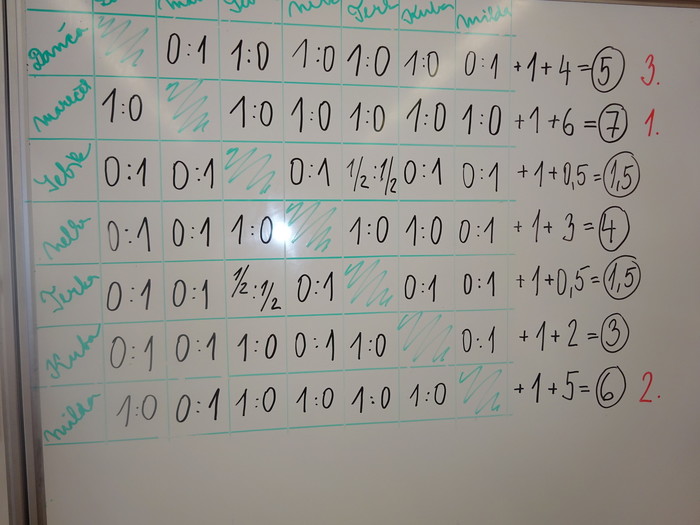 Terk Kuba milda
0:1 1:0 1:0 1:0 1:0 0:1 +1+4=5 3.
mareček 1:0 1:0 1:0 1:0 1:0 1:0 +1+6=7 1.
0:1 0:1 0:1 1/2:1/2 0:1 0:1 +1+0,5=1,5
nelka 0:1 0:1 1:0 1:0 1:0 0:1 +1+3=4
Terka 0:1 0:1 1/2:1/2 0:1 0:1 0:1 +1+0,5=1,5
Kuba 0:1 0:1 1:0 0:1 1:0 0:1 +1+2=3
milda 1:0 0:1 1:0 1:0 1:0 1:0 +1+5=6 2.